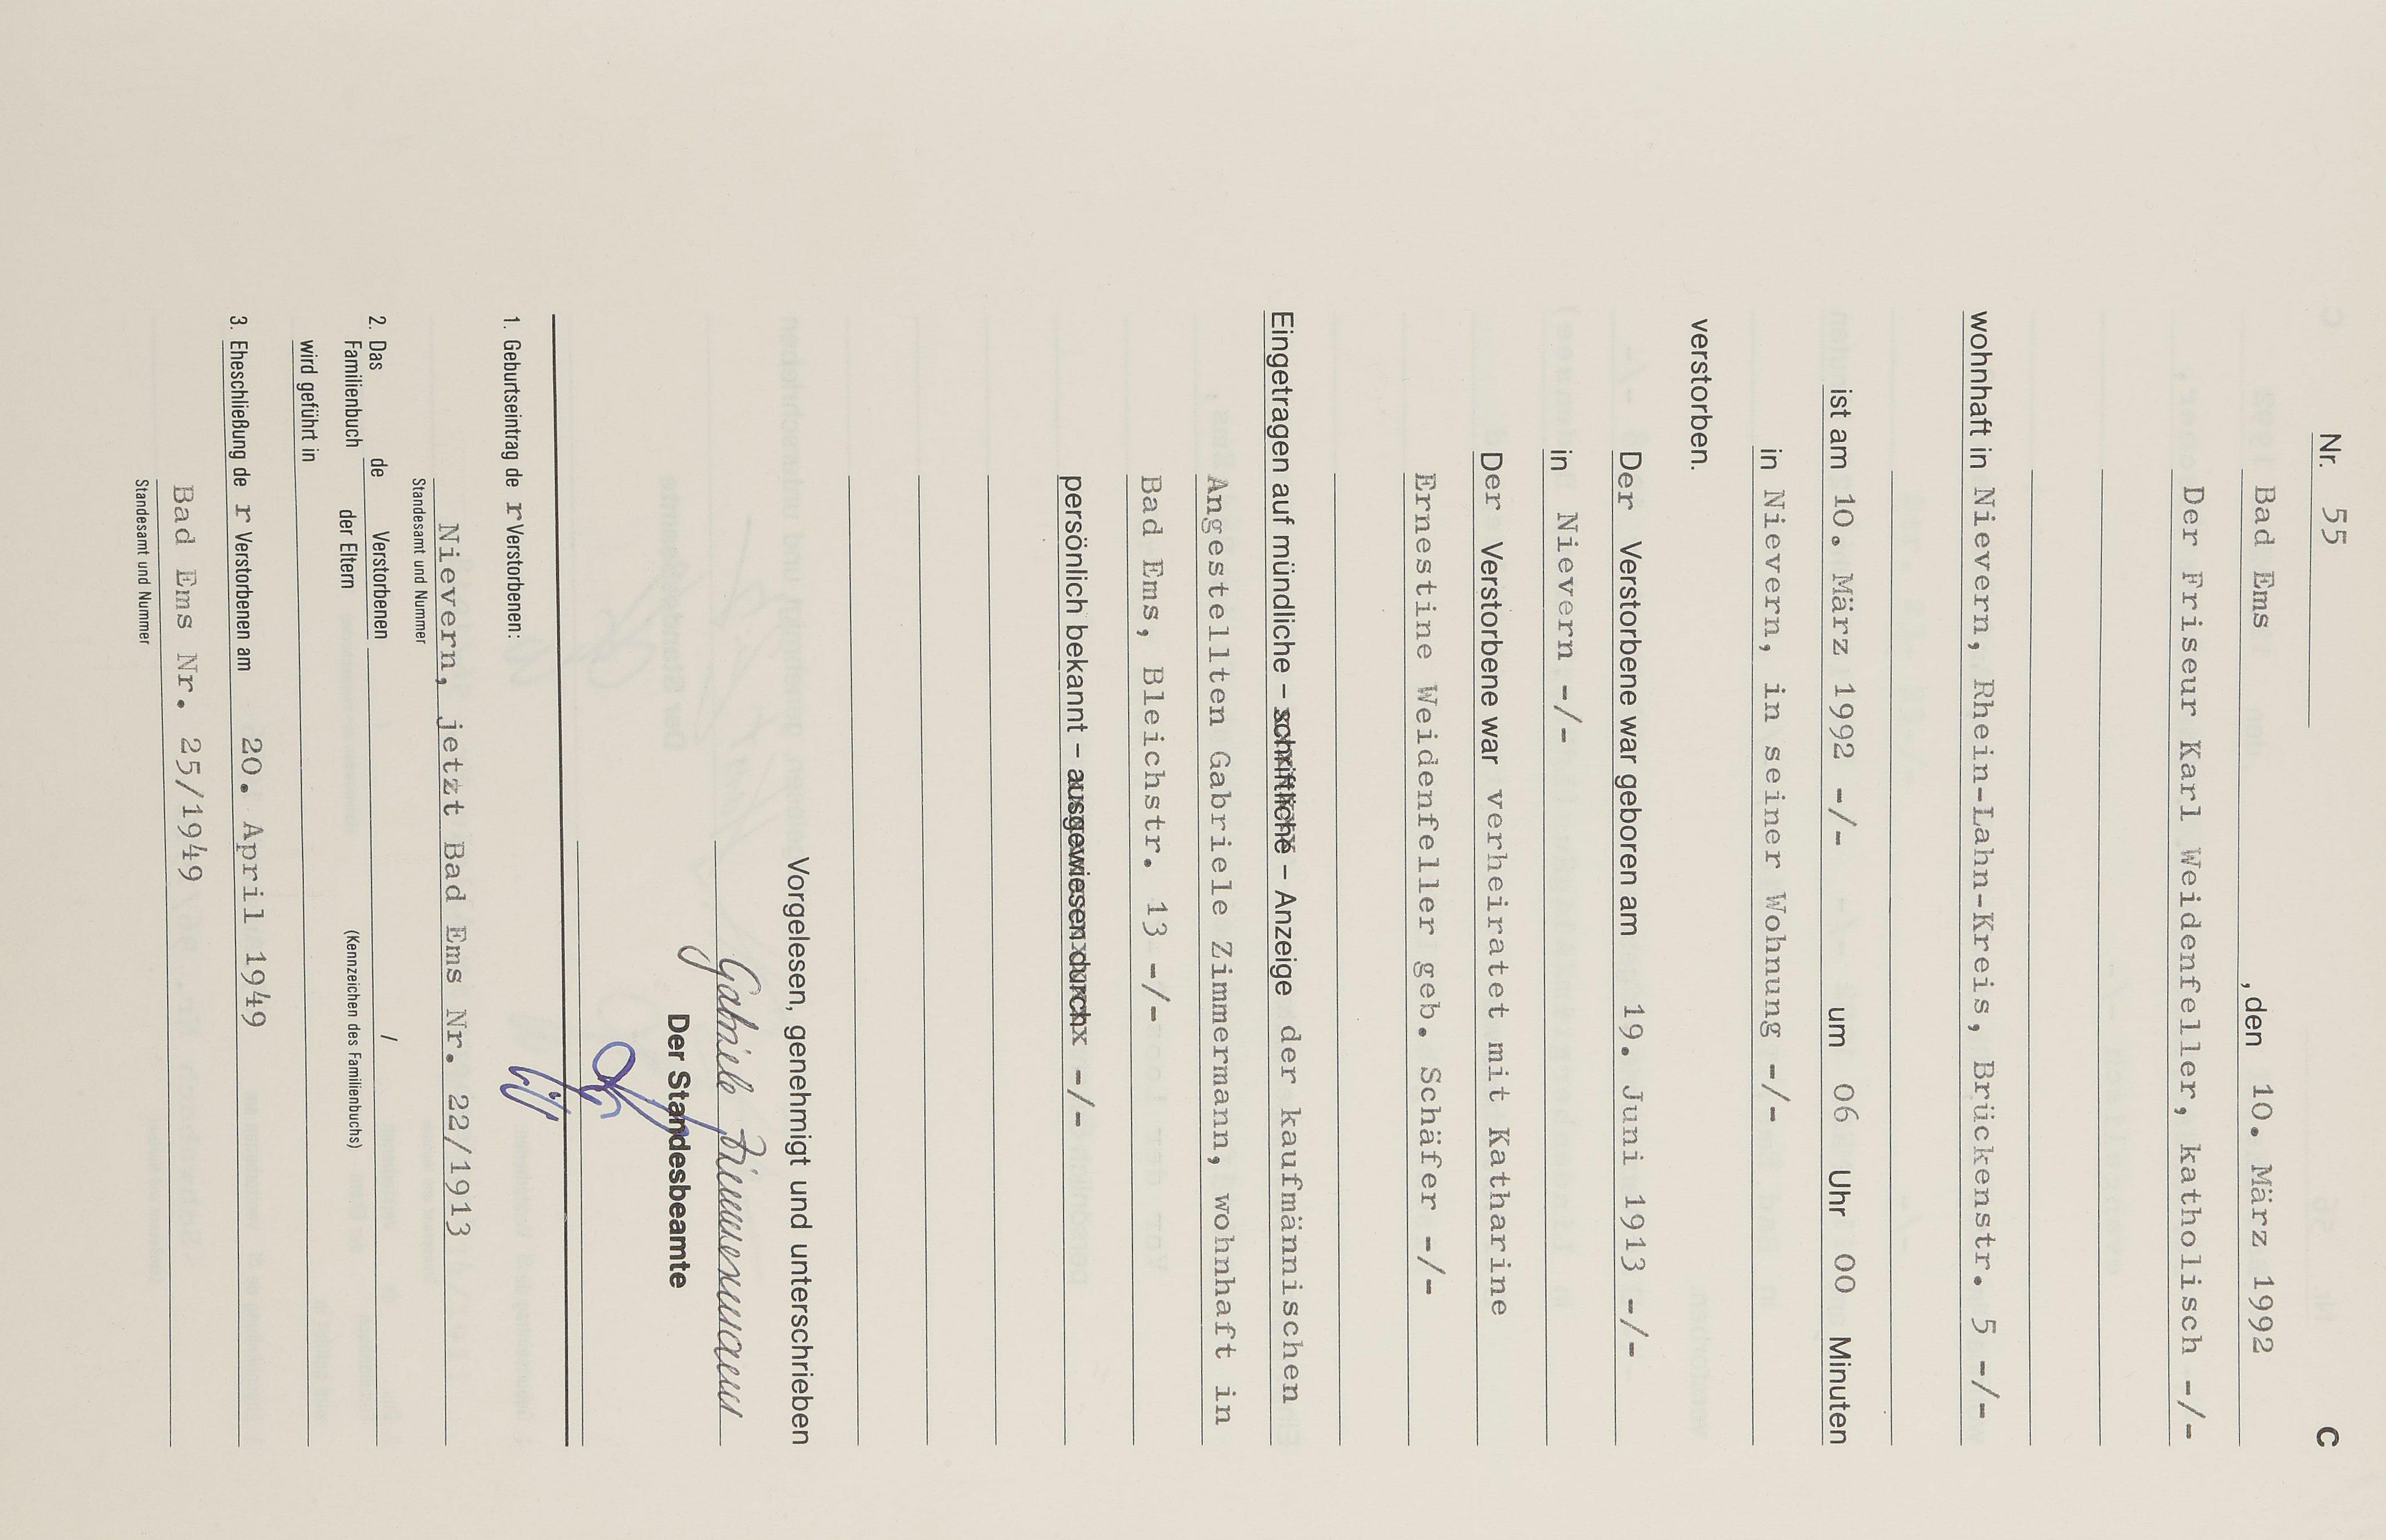 Nr. 55
C
Bad Ems , den 10. März 1992
Der Friseur Karl Weidenfeller, katholisch -/-
wohnhaft in Nievern, Rhein-Lahn-Kreis, Brückenstr. 5 -/-
ist am 10. März 1992 -/- um 06 Uhr 00 Minuten
in Nievern, in seiner Wohnung -/-
verstorben.
Der Verstorbene war geboren am 19. Juni 1913 -/-
in Nievern -/-
Der Verstorbene war verheiratet mit Katharine
Ernestine Weidenfeller geb. Schäfer -/-
Eingetragen auf mündliche – schriftliche – Anzeige der kaufmännischen
Angestellten Gabriele Zimmermann, wohnhaft in
Bad Ems, Bleichstr. 13 -/-
persönlich bekannt – ausgewiesen durch -/-
Vorgelesen, genehmigt und unterschrieben
Gabriele Zimmermann
Der Standesbeamte
1. Geburtseintrag de r Verstorbenen:
Nievern, jetzt Bad Ems Nr. 22/1913
Standesamt und Nummer
2. Das Familienbuch de Verstorbenen /
der Eltern (Kennzeichen des Familienbuchs)
wird geführt in
3. Eheschließung de r Verstorbenen am 20. April 1949
Bad Ems Nr. 25/1949
Standesamt und Nummer